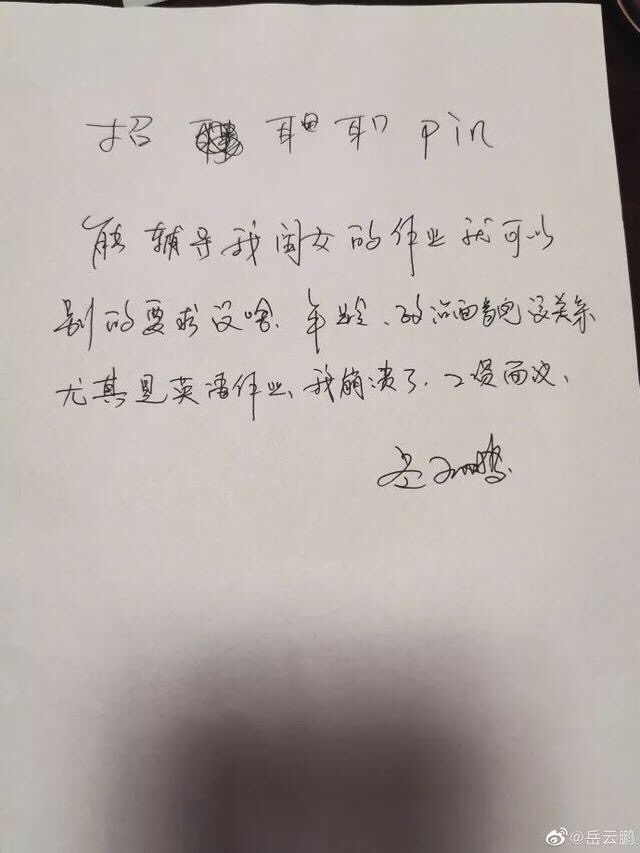 招 职 pin
能辅导我闺女的作业就可以
别的要求没啥、年龄、政治面貌没关系
尤其是英语作业、我崩溃了、工资面议、
岳云鹏
@岳云鹏